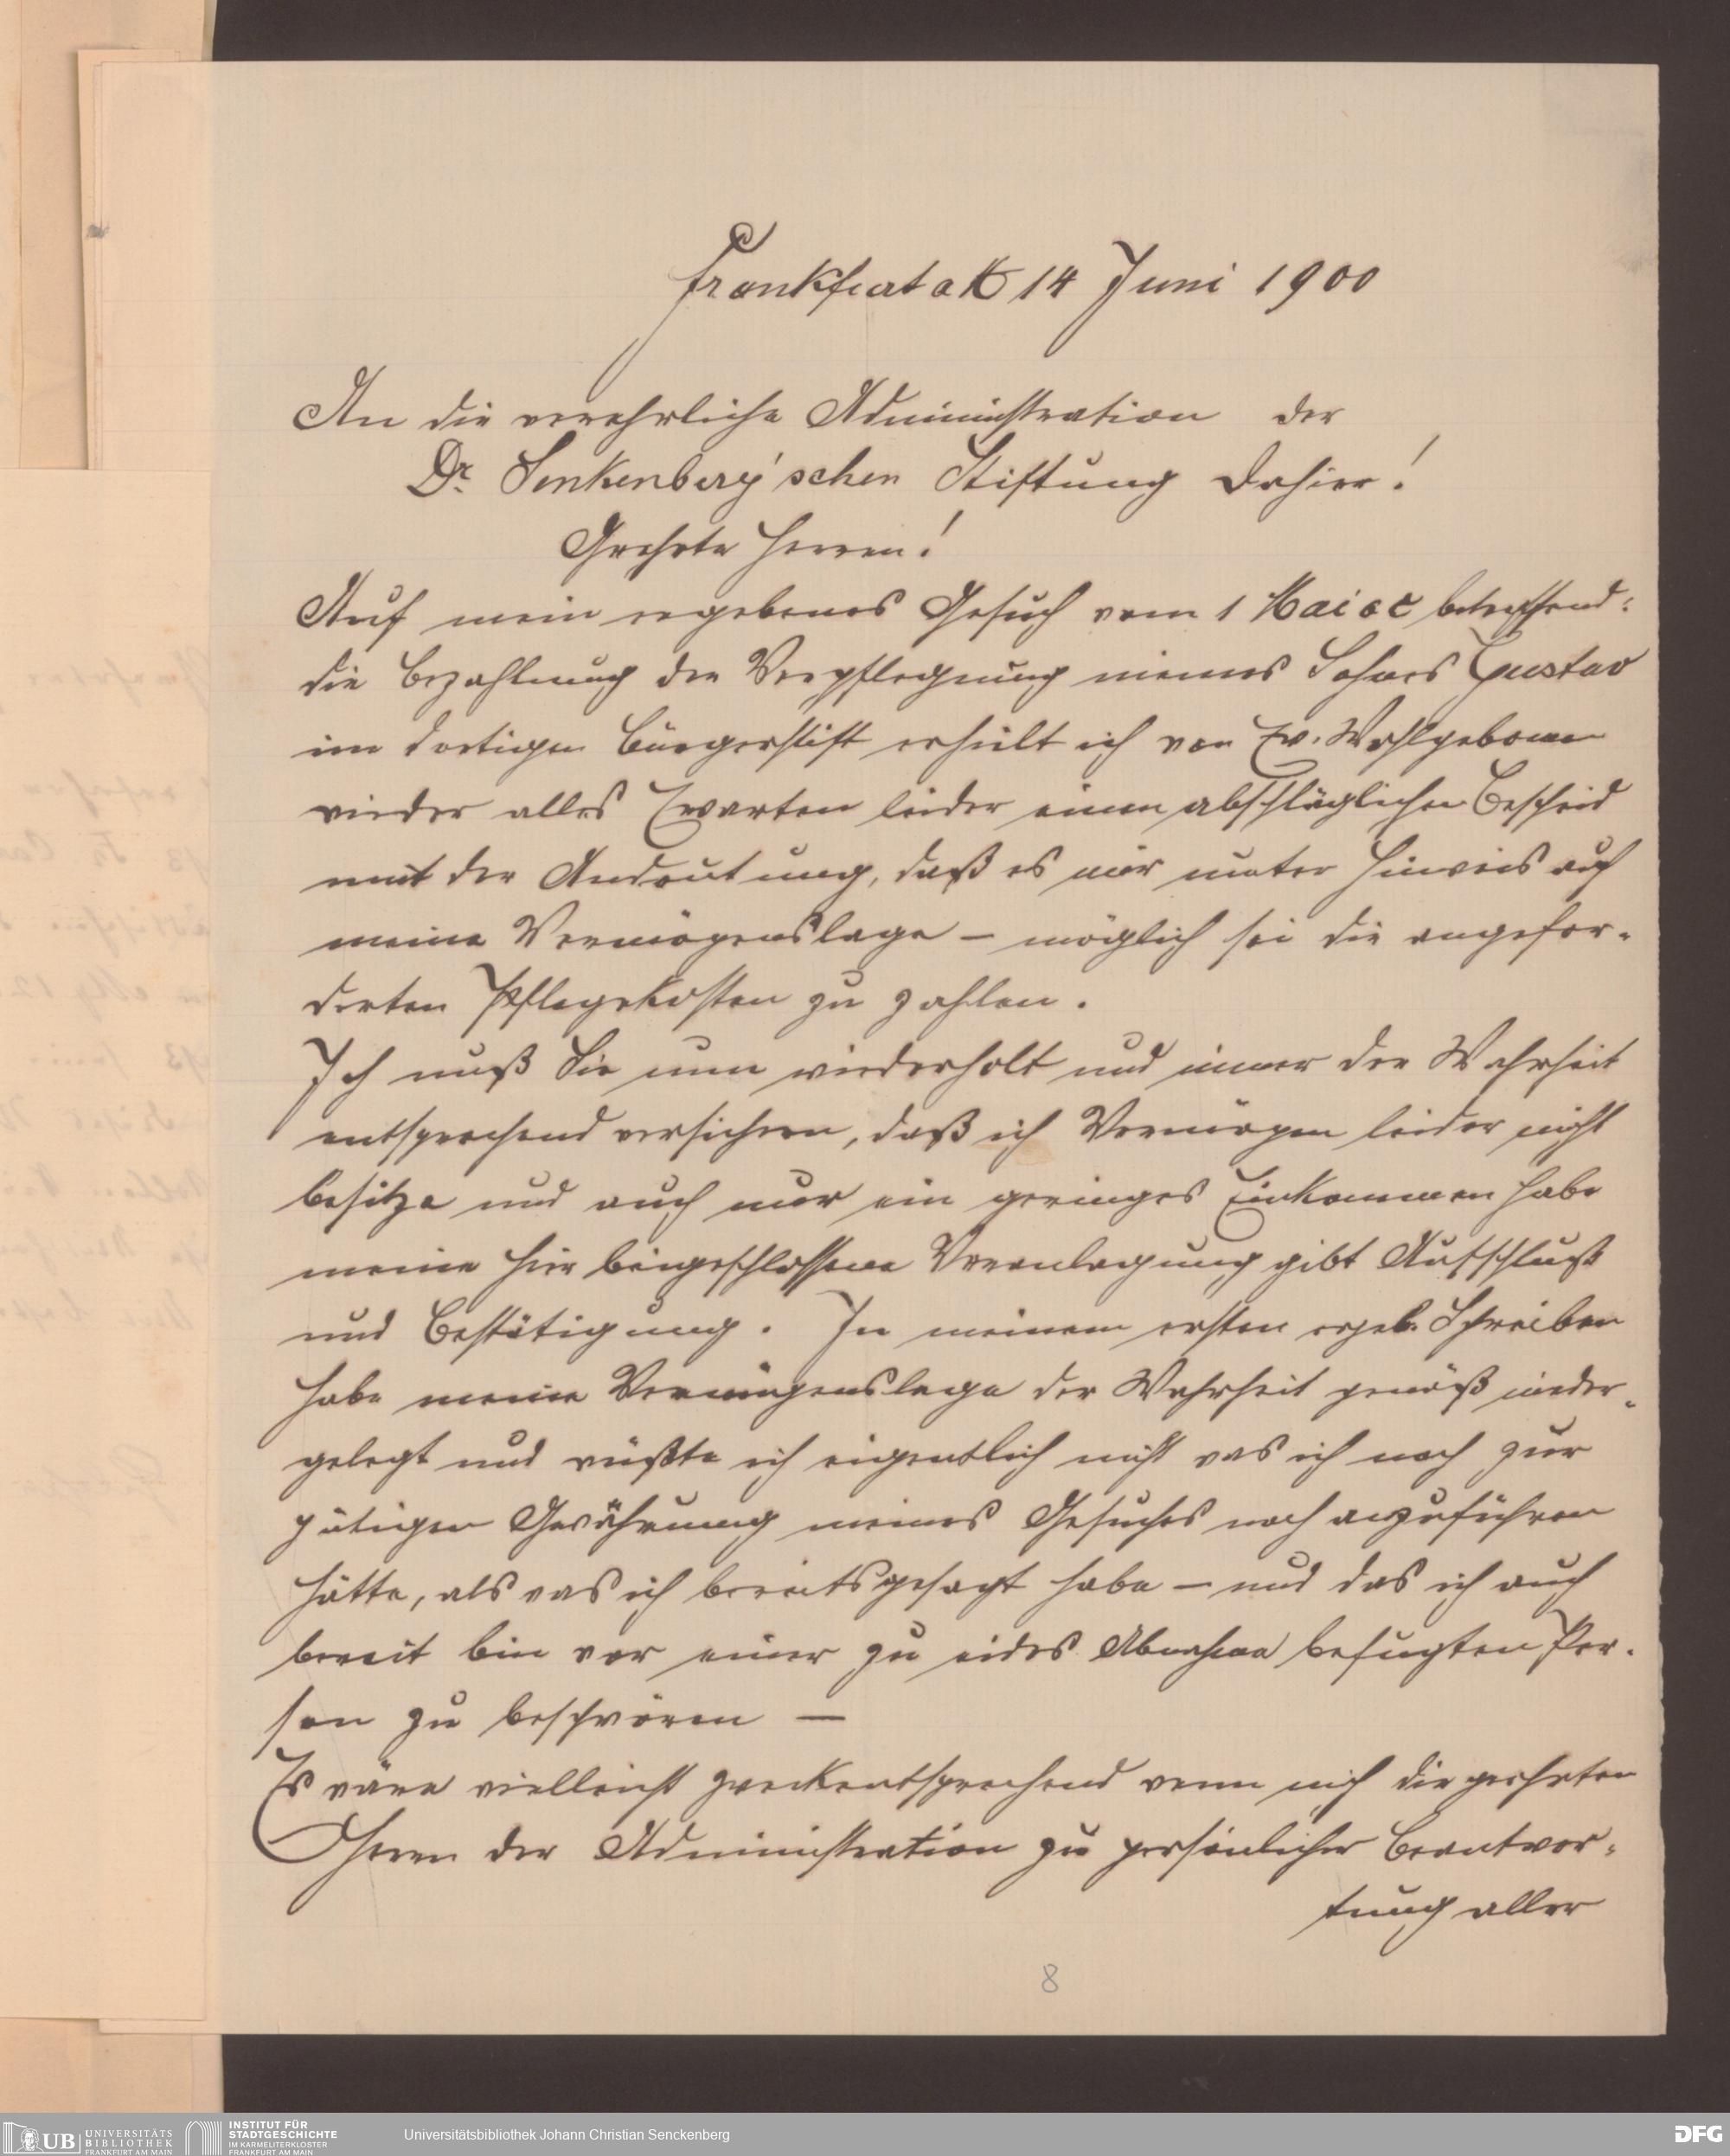 Frankfurt aM 14 Juni 1900
An die verehrliche Administration der
Dr. Senkenberg'schen Stiftung dahier!
Geehrte Herren!
Auf mein ergebenes Gesuch vom 1 Mai cc betreffend:
die Bezahlung der Verpflegung meines Sohnes Gustav
im dortigen Bürgerstift erhielt ich von Ew. Wohlgeboren
wieder alles Erwarten leider einen abschläglichen Bescheid
mit der Andeutung, daß es mir unter Hinweis auf
meine Vermögenslage – möglich sei die angefor-
derten Pflegekosten zu zahlen.
Ich muß Sie nun wiederholt und immer der Wahrheit
entsprechend versichern, daß ich Vermögen leider nicht
besitze und auch nur ein geringes Einkommen habe
meine hier beigeschlossene Veranlagung gibt Aufschluß
und Bestätigung. In meinem ersten ergeb. Schreiben
habe meine Vermögenslage der Wahrheit gemäß nieder-
gelegt und wüßte ich eigentlich nicht was ich noch zur
gütigen Gewährung meines Gesuches noch anzuführen
hätte, als was ich bereits gesagt habe – und das ich auch
bereit bin vor einer zu eides Abnahme befugten Per-
son zu beschwören –
Es wäre vielleicht zweckentsprechend wenn mich die geehrten
Herren der Administration zu persönlicher Beantwor-
tung aller
8
UB UNIVERSITÄTS
BIBLIOTHEK
FRANKFURT AM MAIN
INSTITUT FÜR
STADTGESCHICHTE
IM KARMELITERKLOSTER
FRANKFURT AM MAIN
Universitätsbibliothek Johann Christian Senckenberg
DFG